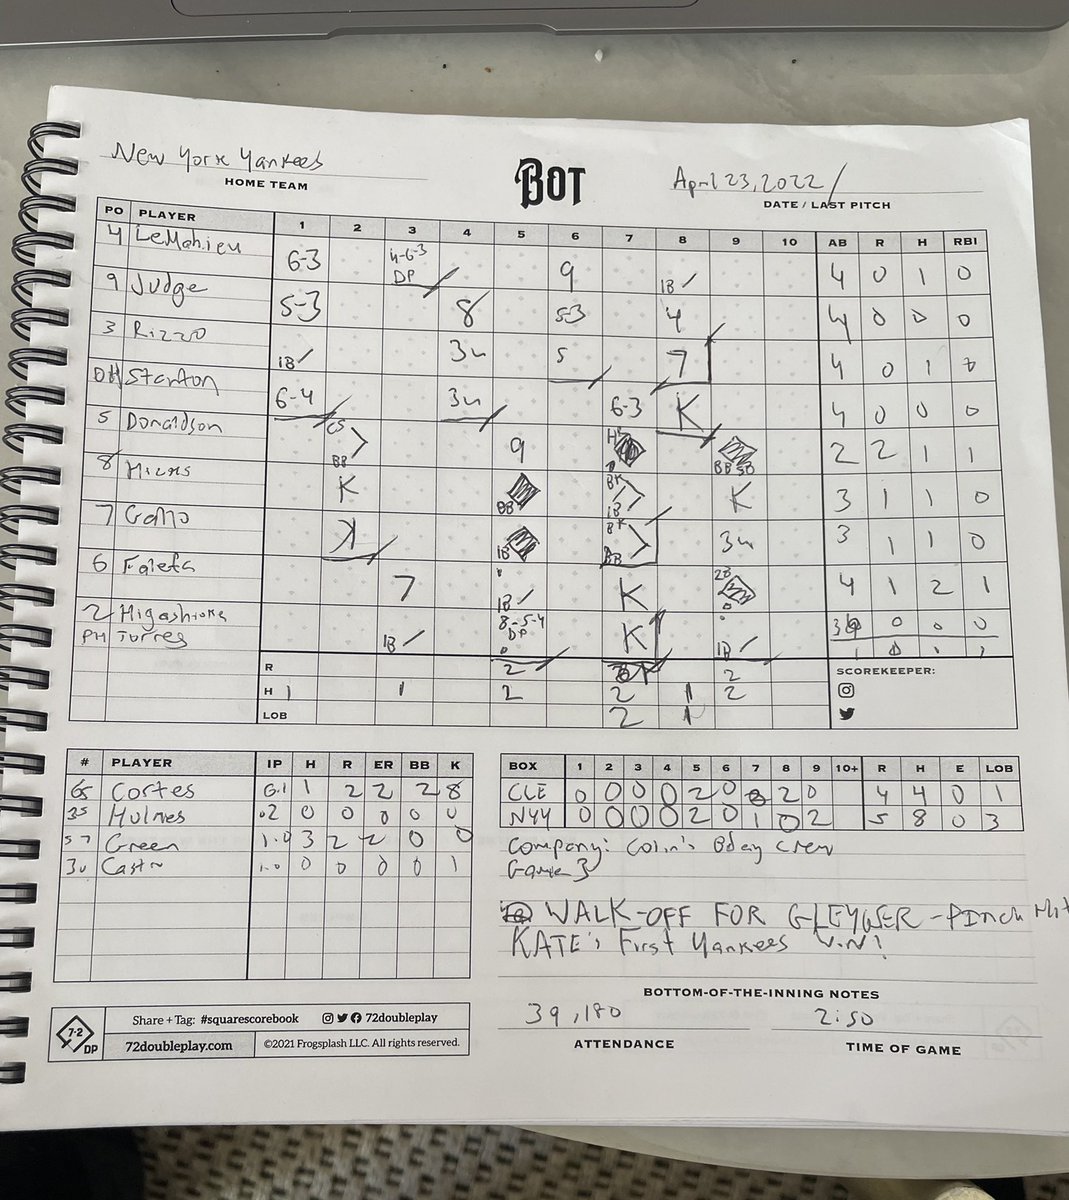 New York Yankees
HOME TEAM
BOT
April 23, 2022 /
DATE / LAST PITCH
PO PLAYER 1 2 3 4 5 6 7 8 9 10 AB R H RBI
4 LeMahieu 6-3 4-6-3 DP 9 1B 4 0 1 0
9 Judge 5-3 8 5-3 4 4 0 0 0
3 Rizzo 1B 3u 5 7 4 0 1 0
DH Stanton 6-4 3u 6-3 K 4 0 0 0
5 Donaldson CS BB 9 H BB SB 2 2 1 1
8 Hicks K BB BK 1B K 3 1 1 0
7 Gallo K 1B BK BB 3u 3 1 1 0
6 Falefa 7 1B K 2B 4 1 2 1
2 Higashioka 1B 8-5-4 DP K 3 0 0 0
PH Torres 1B
R 2 2
H 1 1 2 2 1 2
LOB 2 1
SCOREKEEPER:
# PLAYER IP H R ER BB K
65 Cortes 6.1 1 2 2 2 8
35 Holmes .2 0 0 0 0 0
57 Green 1.0 3 2 2 0 0
30 Castro 1.0 0 0 0 0 1
BOX 1 2 3 4 5 6 7 8 9 10+ R H E LOB
CLE 0 0 0 0 2 0 0 2 0 4 4 0 1
NYY 0 0 0 0 2 0 1 0 2 5 8 0 3
Company: Colin's Bday Crew
Game 3
WALK-OFF FOR GLEYBER - PINCH Hit
KATE's First Yankees Win!
BOTTOM-OF-THE-INNING NOTES
39,180
ATTENDANCE
2:50
TIME OF GAME
7-2 DP
Share + Tag: #squarescorebook 72doubleplay
72doubleplay.com
©2021 Frogsplash LLC. All rights reserved.